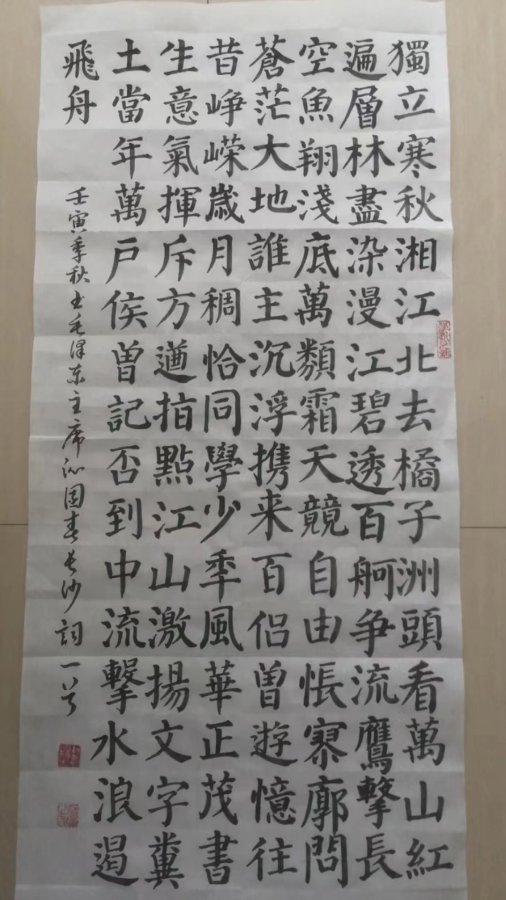 獨立寒秋湘江北去橘子洲頭看萬山紅
遍層林盡染漫江碧透百舸争流鷹擊長
空魚翔淺底萬類霜天競自由悵寥廓問
蒼茫大地誰主沉浮携来百侣曾遊憶往
昔峥嵘歲月稠恰同學少年風華正茂書
生意氣揮斥方遒指點江山激揚文字糞
土當年萬戶侯曾記否到中流擊水浪遏
飛舟
壬寅季秋书毛泽东主席沁园春长沙詞一首